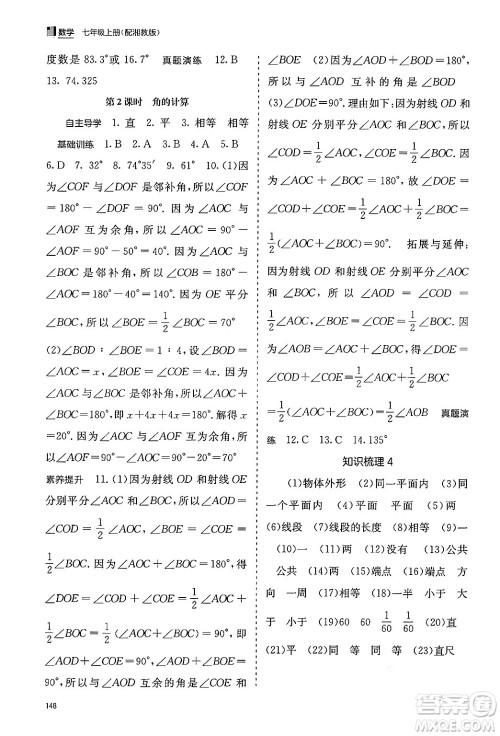 数学 七年级上册(配湘教版)
度数是 83.3°或 16.7° 真题演练 12.B
13. 74.325
第 2 课时 角的计算
自主导学 1. 直 2. 平 3. 相等 相等
基础训练 1. B 2. B 3. C 4. B 5. B
6. D 7. 32° 8. 74°35′ 9. 61° 10. (1)因
为∠COF 与∠DOF 是邻补角,所以∠COF
=180°-∠DOF=90°. 因为∠AOC 与∠AOF
互为余角,所以∠AOC=90°-
∠AOF=90°-50°=40°. 因为∠AOC 与
∠BOC 是邻补角,所以∠COB=180°-
∠AOC=180°-40°=140°. 因为 OE 平分
∠BOC,所以∠BOE=1/2∠BOC=70°
(2)∠BOD∶∠BOE=1∶4,设∠BOD=
∠AOC=x,∠BOE=∠COE=4x. 因为
∠AOC 与∠BOC 是邻补角,所以∠AOC+
∠BOC=180°,即 x+4x+4x=180°. 解得 x
=20°. 因为∠AOC 与∠AOF 互为余角,所
以∠AOF=90°-∠AOC=90°-20°=70°
素养提升 11. (1)因为射线 OD 和射线 OE
分别平分∠AOC 和∠BOC,所以∠COD=
1/2∠AOC,∠COE=1/2∠BOC. 所以∠COD
+∠COE=1/2∠AOC+1/2∠BOC=
1/2(∠AOC+∠BOC)=90°. 所以∠COD 与
∠COE 互余 (2)因为射线 OD 和射线 OE
分别平分∠AOC 和∠BOC,所以∠AOD=
1/2∠AOC,∠COE=∠BOE=1/2∠BOC. 因
为∠AOC+∠BOC=180°,所以∠AOD+
∠COE=90°,所以∠AOD+∠BOE=90°. 所
以与∠AOD 互余的角有∠COE 和∠BOE
148
因为∠AOD+∠BOD=180°,∠COD=
∠AOD,所以∠COD+∠BOD=180°.
所以与∠AOD 互补的角有∠BOD
(3)∠DOE=90°. 因为射线 OD 和射线
OE 分别平分∠AOC 和∠BOC,所以
∠COD=1/2∠AOC,∠COE=1/2∠BOC.
所以∠DOE=∠COD+∠COE=
1/2∠AOC+1/2∠BOC=
1/2(∠AOC+∠BOC)=90°. 拓展与延伸:
因为射线 OD 和射线 OE 分别平分∠AOC
和∠BOC,所以∠COD=1/2∠AOC,∠COE
=1/2∠BOC. 因为∠AOB=∠AOC+
∠BOC,∠DOE=∠COD+∠COE,所以
∠DOE=1/2∠AOC+1/2∠BOC
=1/2(∠AOC+∠BOC)=1/2∠AOB 真题演
练 12. C 13. C 14. 135°
知识梳理 4
(1)物体外形 (2)同一平面内 (3)同
一个平面内 (4)平面 平面 (5)两
(6)线段 (7)线段的长度 (8)相等 (9)一
(10)一 (11)两 (12)没有 (13)公共
公共 (14)两 (15)端点 (16)端点 方
向 一周 (17)相等 (18)一半 小于 大
于 小于 (19)60 60 1/60 1/60 (20)直
(21)平 (22)相等 相等 (23)直尺